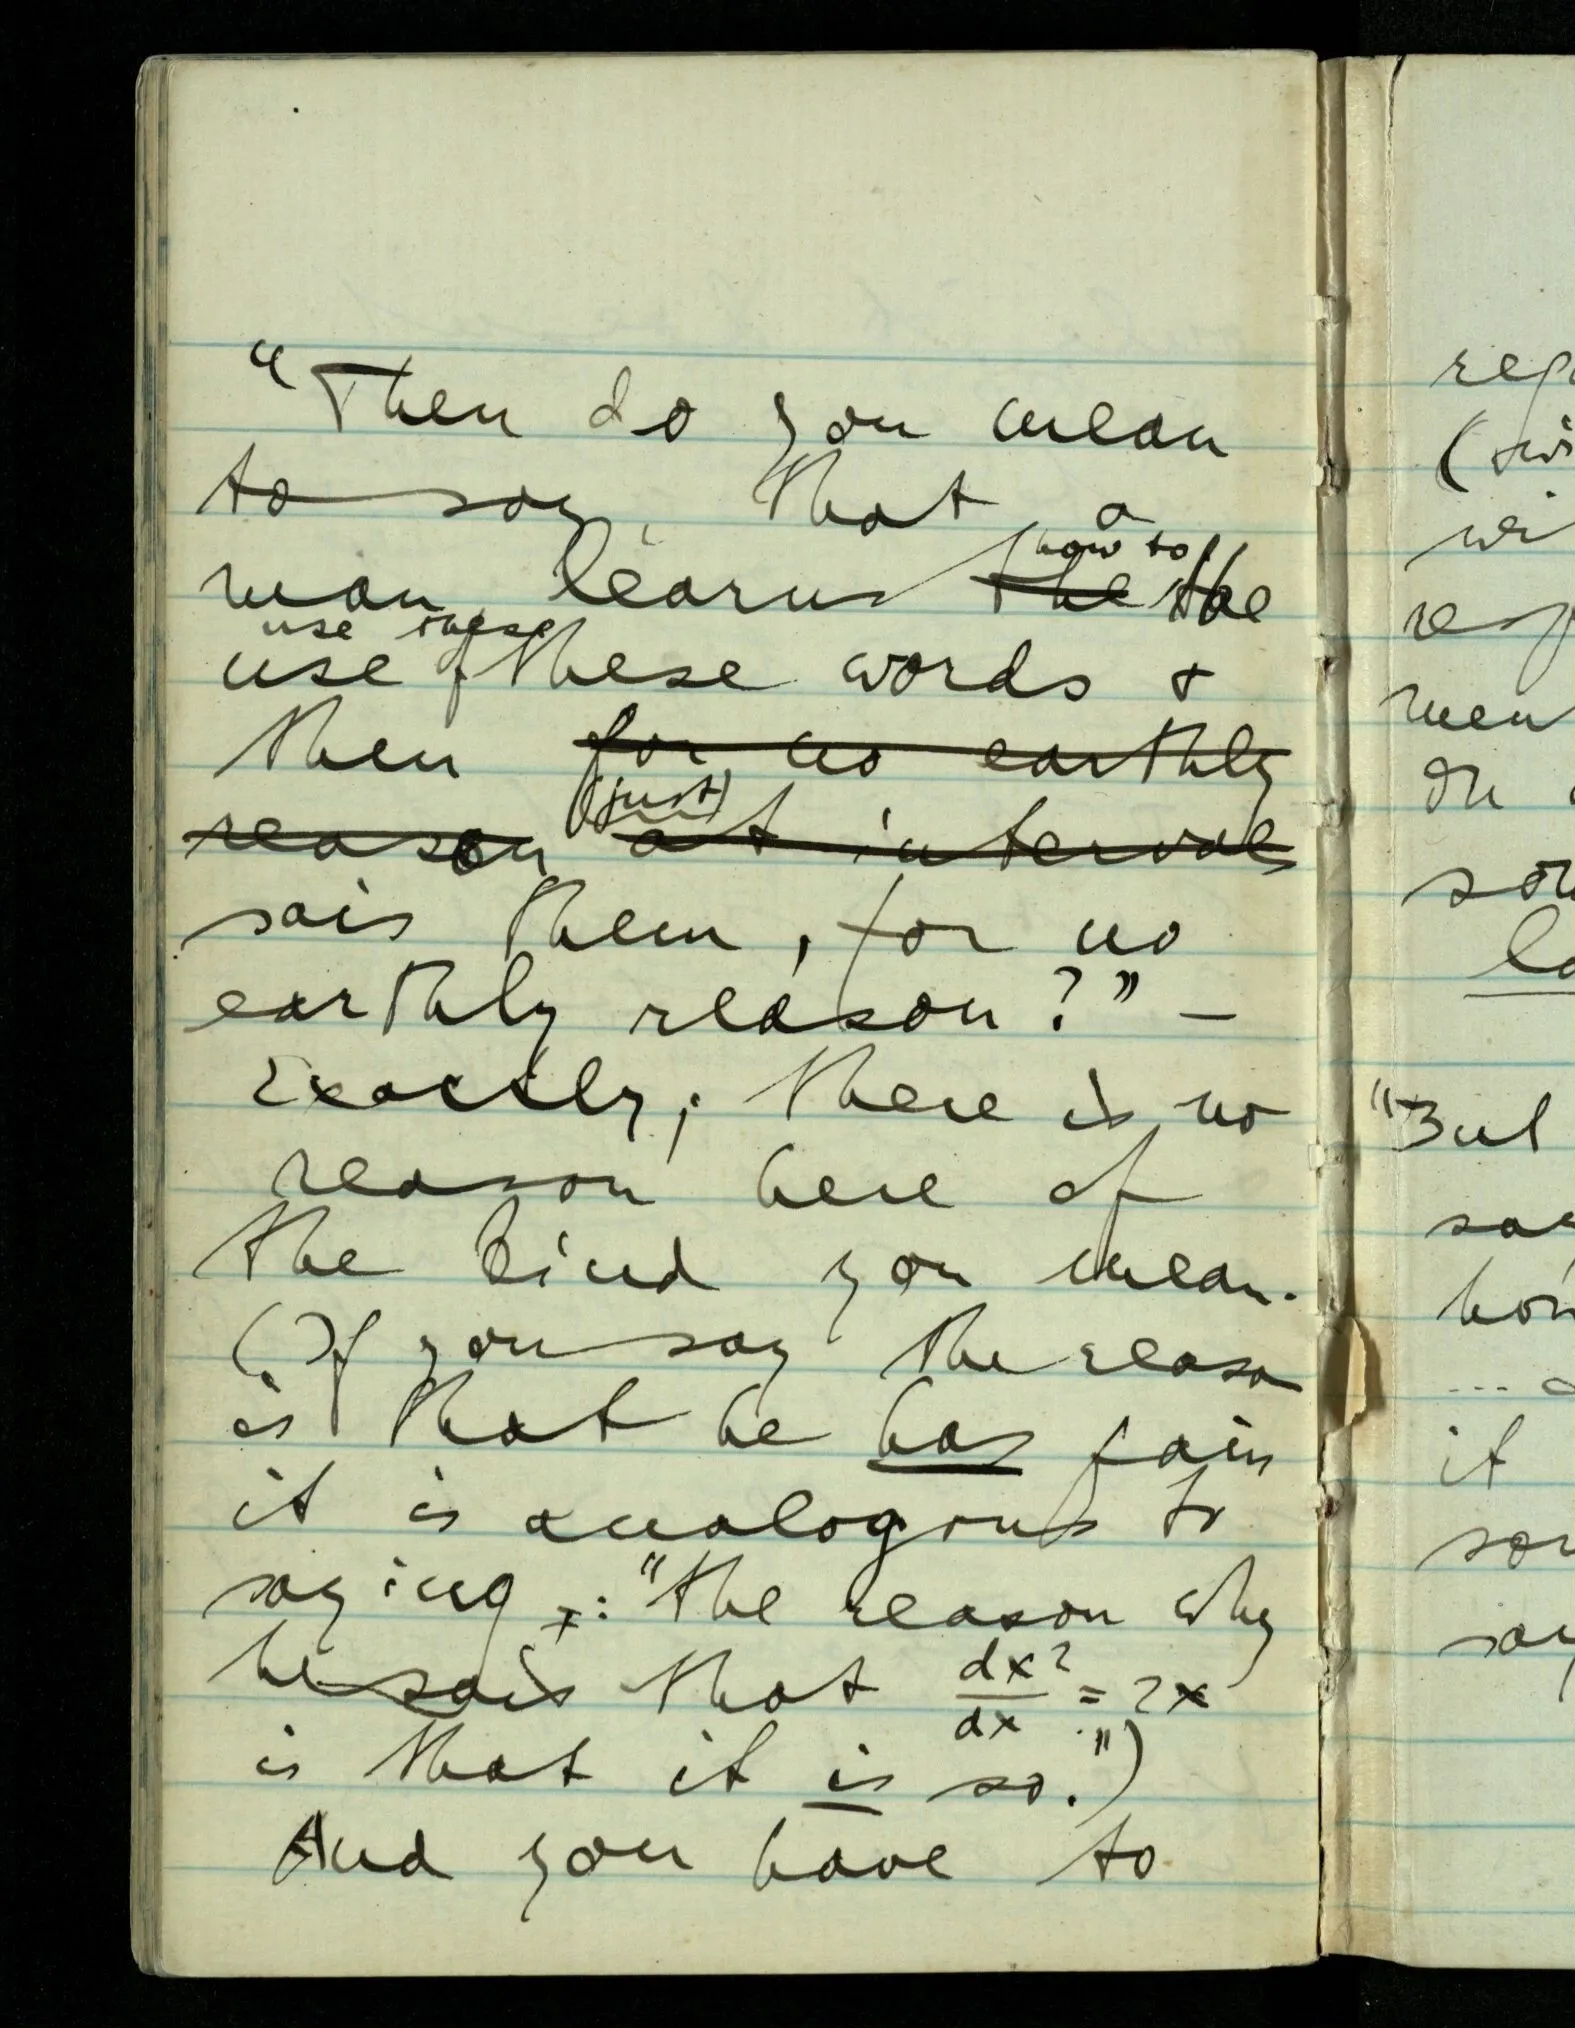 "Then do you mean
to say that a
how to
man learns the the
use these
use of these words &
then for no earthly
(just)
reason at intervals
sais them, for no
earthly reason?" –
Exactly; there is no
reason here of
the kind you mean.
(If you say the reason
is that he has pain
it is analogous to
saying: "the reason why
he sais that dx²/dx = 2x
is that it is so.")
And you have to
(wi
on
"But
it